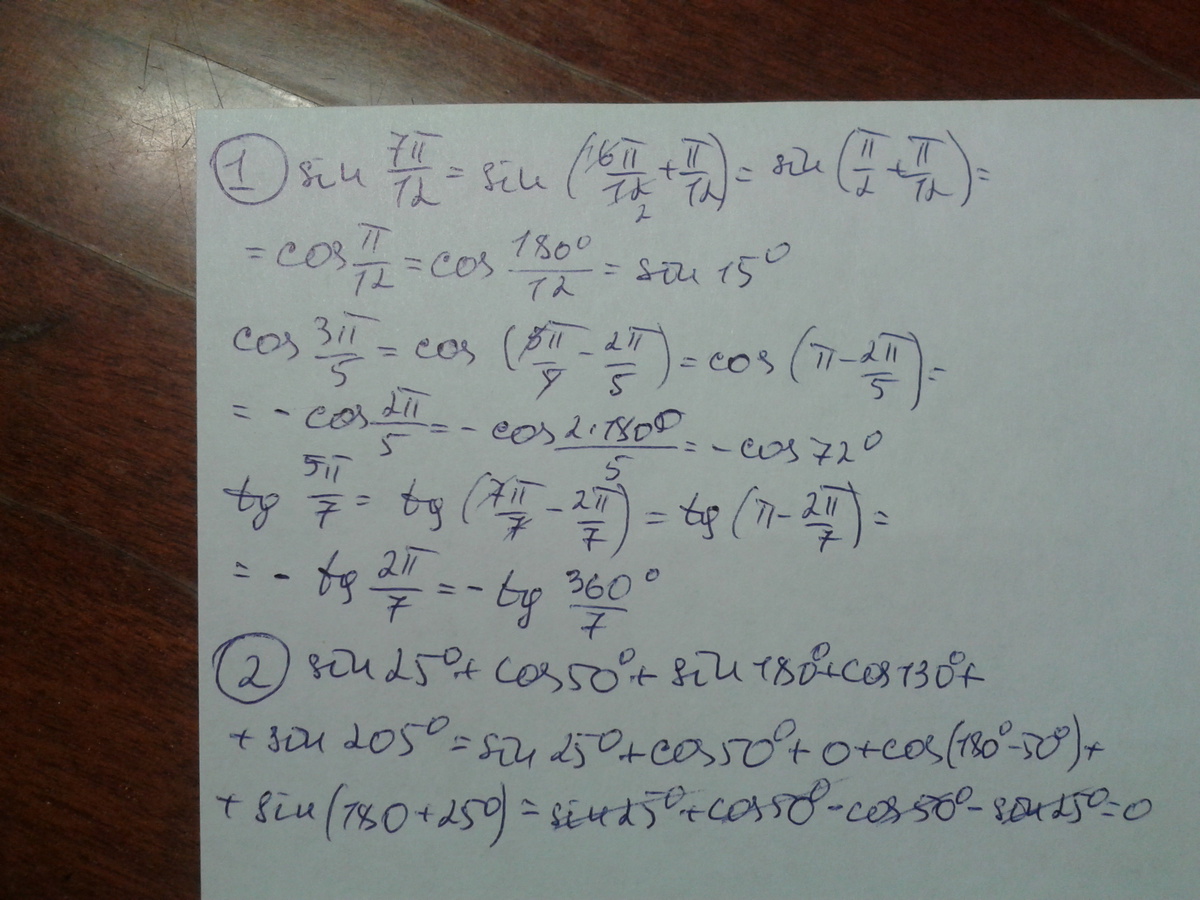 ① sin 7π/12 = sin (16π/12 2 + π/12) = sin (π/2 + π/12) =
= cos π/12 = cos 180°/12 = sin 15°
cos 3π/5 = cos (5π/5 - 2π/5) = cos (π - 2π/5) =
= - cos 2π/5 = - cos 2·180°/5 = - cos 72°
tg 5π/7 = tg (7π/7 - 2π/7) = tg (π - 2π/7) =
= - tg 2π/7 = - tg 360°/7
② sin 25° + cos 50° + sin 180° + cos 130° +
+ sin 205° = sin 25° + cos 50° + 0 + cos (180° - 50°) +
+ sin (180 + 25°) = sin 25° + cos 50° - cos 50° - sin 25° = 0